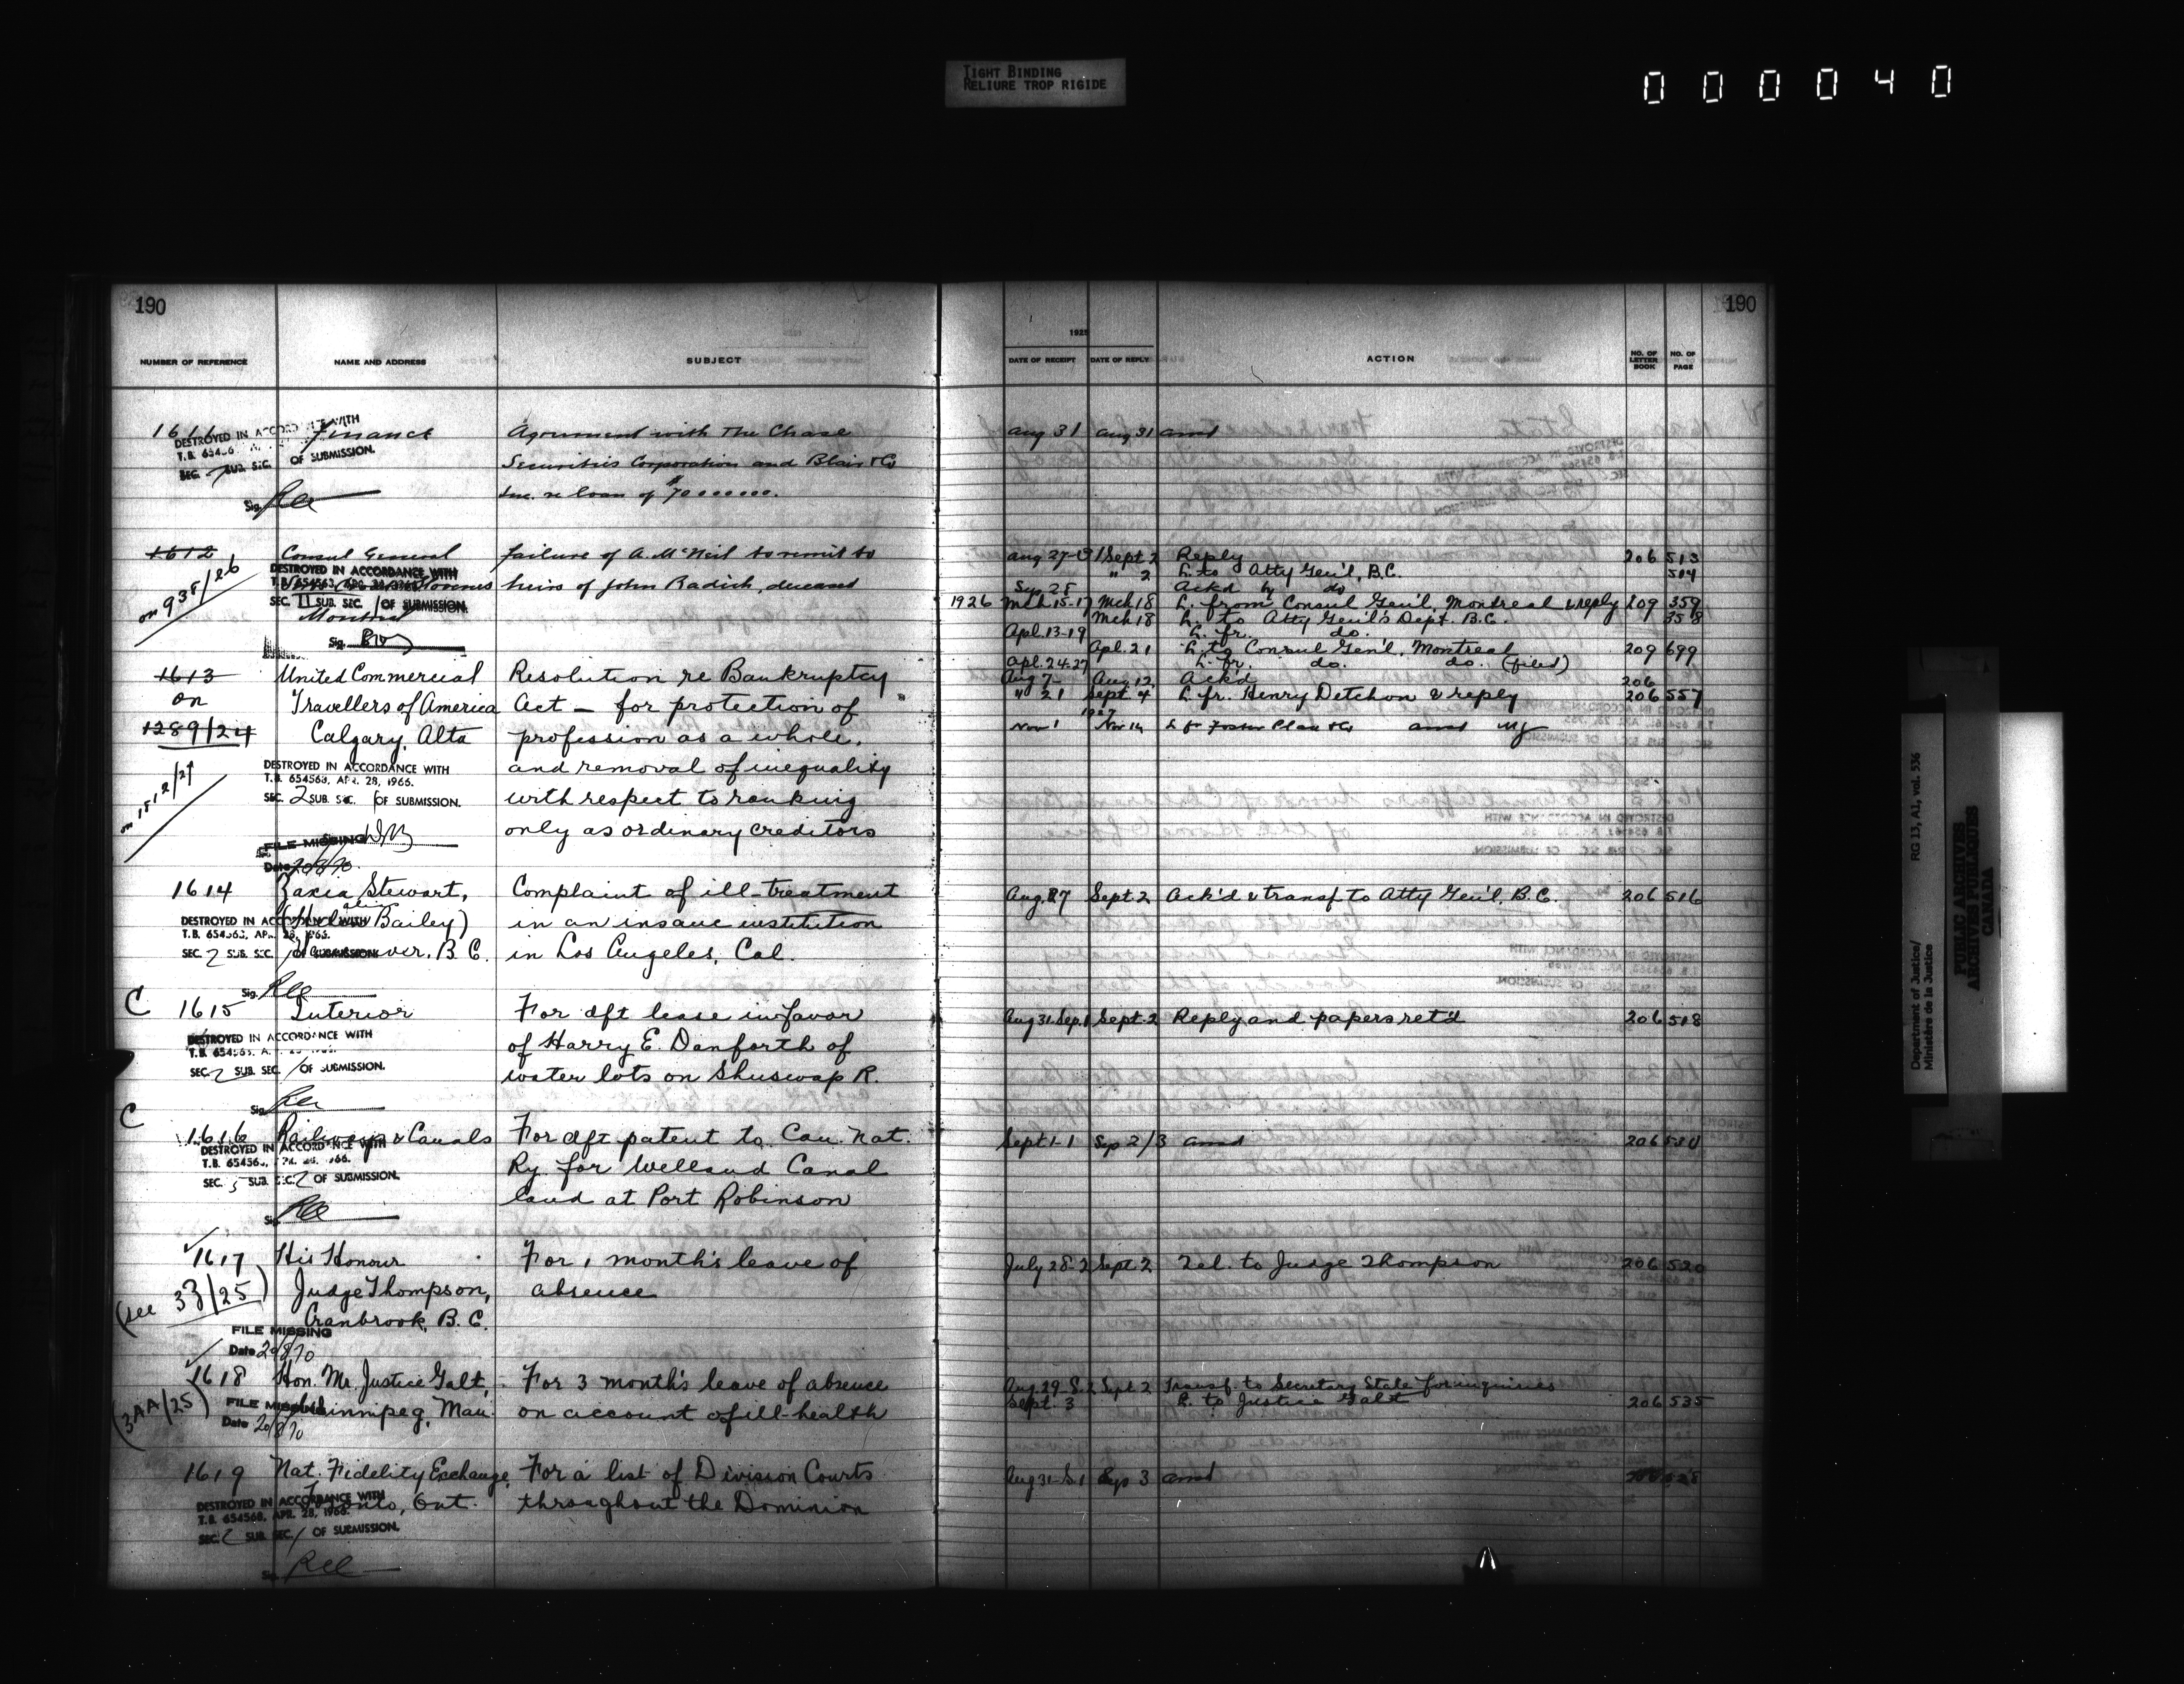 TIGHT BINDING
RELIURE TROP RIGIDE
000040
190
NUMBER OF REFERENCE NAME AND ADDRESS SUBJECT
1611 Finance Agreement with The Chase
DESTROYED IN ACCORDANCE WITH
Securities Corporation and Blair & Co
SEC. SUB. SEC. OF SUBMISSION.
Inc. re loan of $70000000.
Sig.
1612 Consul General failure of A. McNeil to remit to
on 938/26
DESTROYED IN ACCORDANCE WITH
T.B. 654563, APR. 28, 1966.
heirs of John Radich, deceased
SEC. 11 SUB. SEC. 1 OF SUBMISSION.
Montreal
Sig.
1613 United Commercial Resolution re Bankruptcy
on Travellers of America Act — for protection of
1289/24 Calgary, Alta profession as a whole,
DESTROYED IN ACCORDANCE WITH and removal of inequality
T.B. 654563, APR. 28, 1966.
SEC. 2 SUB. SEC. 1 OF SUBMISSION. with respect to ranking
only as ordinary creditors
FILE MISSING
Date 20/8/70
1614 Zaxia Stewart, Complaint of ill-treatment
alias
(Helen Bailey) in an insane institution
DESTROYED IN ACCORDANCE WITH
T.B. 654563, APR. 28, 1966.
SEC. 2 SUB. SEC. 1 OF SUBMISSION.
Vancouver, B.C. in Los Angeles, Cal.
Sig.
C 1615 Interior For dft lease in favor
DESTROYED IN ACCORDANCE WITH of Harry E. Danforth of
SEC. 2 SUB. SEC. 1 OF SUBMISSION. water lots on Shuswap R.
Sig.
C
1616 Railways & Canals For dft patent to Can. Nat.
DESTROYED IN ACCORDANCE WITH
Ry. for Welland Canal
SEC. 5 SUB. SEC. 2 OF SUBMISSION.
land at Port Robinson
Sig.
1617 His Honour For 1 month's leave of
(see 33/25) Judge Thompson, absence
Cranbrook, B.C.
FILE MISSING
Date 20/8/70
1618 Hon. Mr. Justice Galt, For 3 month's leave of absence
(3AA/25) Winnipeg, Man. on account of ill-health
FILE MISSING
Date 20/8/70
1619 Nat. Fidelity Exchange, For a list of Division Courts
Toronto, Ont. throughout the Dominion
DESTROYED IN ACCORDANCE WITH
T.B. 654563, APR. 28, 1966.
SEC. 2 SUB. SEC. 1 OF SUBMISSION.
Sig.
190
1925
DATE OF RECEIPT DATE OF REPLY ACTION NO. OF LETTER BOOK NO. OF PAGE
Aug 31 Aug 31 ansd
Aug 27-31 Sept 2 Reply 206 513
" 2 L. to Atty Gen'l, B.C. 514
Sep 28 Ackd by do
1926 Mch 15-17 Mch 18 L. from Consul Gen'l, Montreal & reply 209 359
Mch 18 L. to Atty Gen'l's Dept. B.C. 358
Apl. 13-19 L. fr. do.
Apl. 21 L. to Consul Gen'l, Montreal 209 699
Apl. 24-27 L. fr. do. do. (filed)
Aug 7- Aug 12 Ack'd 206
" 21 Sept 4 L. fr. Henry Detchon & reply 206 557
1927
Nov 1 Nov 14 L fr Foster Plan & Co ansd
Aug. 27 Sept. 2 Ack'd & transf. to Atty Gen'l, B.C. 206 516
Aug 31-Sep. 1 Sept. 2 Reply and papers ret'd 206 518
Sept 1-1 Sep 2/3 ansd 206 530
July 28-2 Sept 2 Tel. to Judge Thompson 206 520
Aug. 29-S. 2 Sept 2 Transf. to Secretary State for inquiries
Sept. 3 L. to Justice Galt 206 535
Aug 31-S 1 Sep 3 ansd 528
Department of Justice/
Ministère de la Justice
RG 13, A1, vol. 536
PUBLIC ARCHIVES
ARCHIVES PUBLIQUES
CANADA